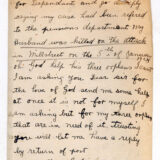 for Dependant and go straight
saying my case had been refered
to the pensions department my
Husband was killed on the attack
Milltown on the 5th of January
oh God help his three orphans
I am asking you Dear sir for
the love of God and me some help
at once it is not for myself I
am asking but for my three orphans
that are in need of it. Trusting
you will let me have a reply
by return of post